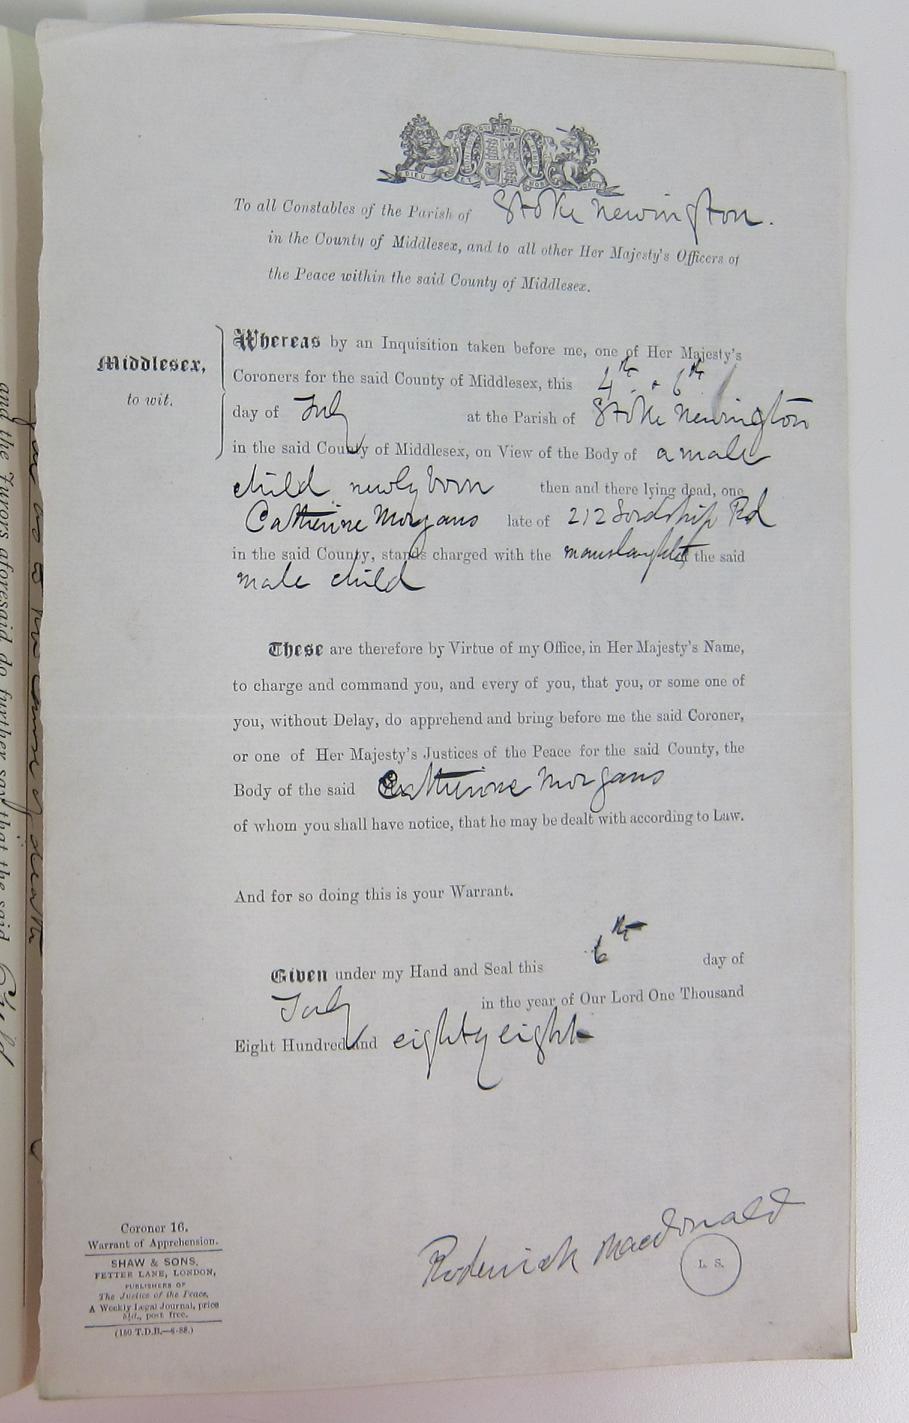 To all Constables of the Parish of Stoke Newington.
in the County of Middlesex, and to all other Her Majesty's Officers of
the Peace within the said County of Middlesex.
Middlesex,
to wit.
Whereas by an Inquisition taken before me, one of Her Majesty's
Coroners for the said County of Middlesex, this 4th & 6th
day of July at the Parish of Stoke Newington
in the said County of Middlesex, on View of the Body of a male
child newly born then and there lying dead, one
Catherine Morgans late of 212 Lordship Rd
in the said County, stands charged with the manslaughter the said
male child
These are therefore by Virtue of my Office, in Her Majesty's Name,
to charge and command you, and every of you, that you, or some one of
you, without Delay, do apprehend and bring before me the said Coroner,
or one of Her Majesty's Justices of the Peace for the said County, the
Body of the said Catherine Morgans
of whom you shall have notice, that he may be dealt with according to Law.
And for so doing this is your Warrant.
Given under my Hand and Seal this 6th day of
July in the year of Our Lord One Thousand
Eight Hundred and eighty eight
Roderick Macdonald
L. S.
Coroner 16.
Warrant of Apprehension.
SHAW & SONS,
FETTER LANE, LONDON,
PUBLISHERS OF
The Justice of the Peace,
A Weekly Legal Journal, price
post free.
(150 T.D.B.—6-88.)
and the Jurors aforesaid do further say that the said Child